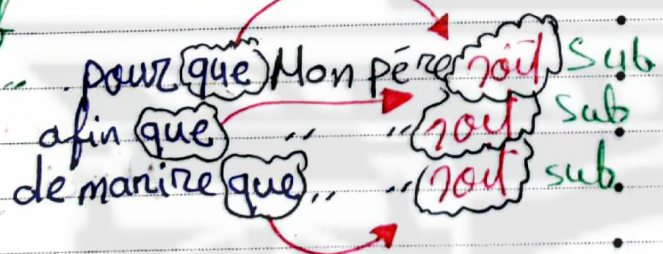 ,, . pour que Mon père soit Sub
afin que ,, ,, soit sub
de manire que ,, ,, soit sub.